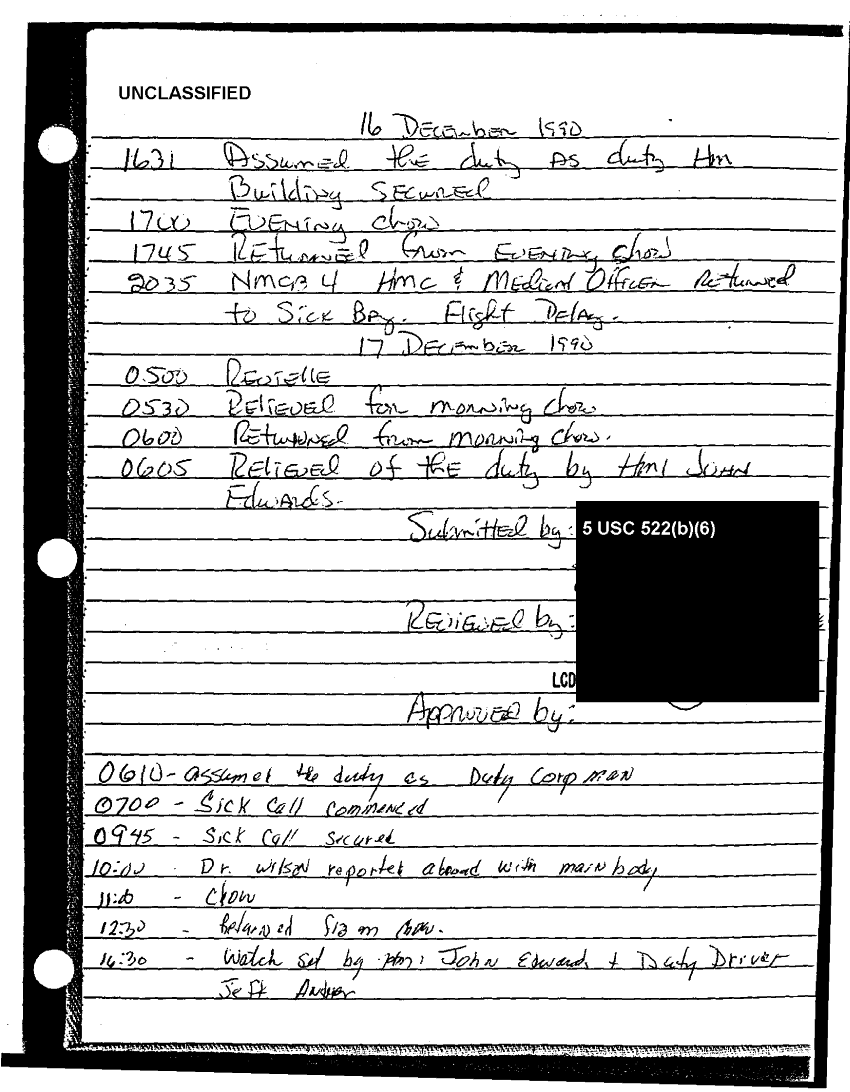 UNCLASSIFIED
16 December 1990
1631 Assumed the duty As duty Hm
Building Secured
1700 Evening chow
1745 Returned from Evening chow
2035 NMCB 4 HMC & Medical Officer Returned
to Sick Bay. Flight Delay.
17 December 1990
0500 Revielle
0530 Relieved for morning chow
0600 Returned from morning chow.
0605 Relieved of the duty by Hm1 John
Edwards.
Submitted by: 5 USC 522(b)(6)
Reviewed by:
LCD
Approved by:
0610 - assumet the duty as Duty Corp man
0700 - Sick Call commenced
0945 - Sick Call Secured
10:00 - Dr. Wilson reportet aboard with main body
11:00 - Chow
12:30 - Returned from chow.
16:30 - Watch set by Hm1 John Edwards + Duty Driver
Jeff